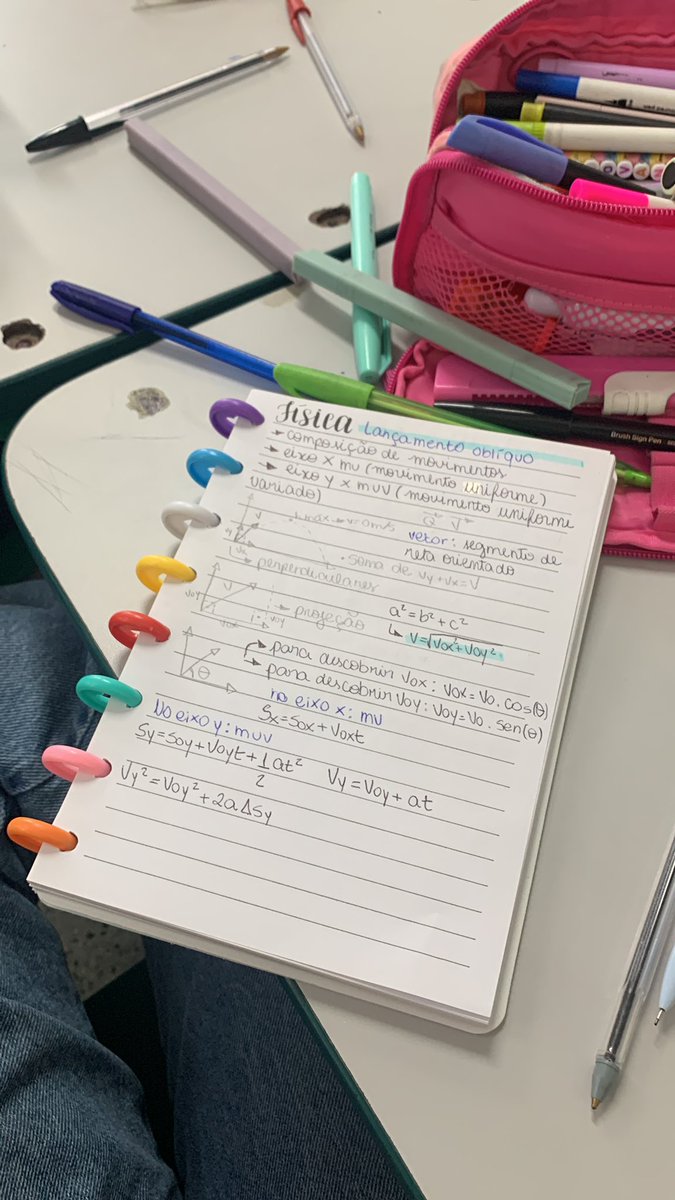 física Lançamento oblíquo
→ composição de movimentos
→ eixo x mu (movimento uniforme)
→ eixo y x muv (movimento uniforme
variado)
vetor: segmento de
reta orientado
• soma de Vy + Vx = V
→ perpendiculares
→ projeção
a² = b² + c²
↳ V = √Vox² + Voy²
θ
→ para descobrir Vox: Vox = Vo . cos(θ)
→ para descobrir Voy: Voy = Vo . sen(θ)
no eixo x: mu
Sx = Sox + Voxt
No eixo y: muv
Sy = Soy + Voyt + 1/2 at²
Vy = Voy + at
Vy² = Voy² + 2aΔSy
Brush Sign Pen